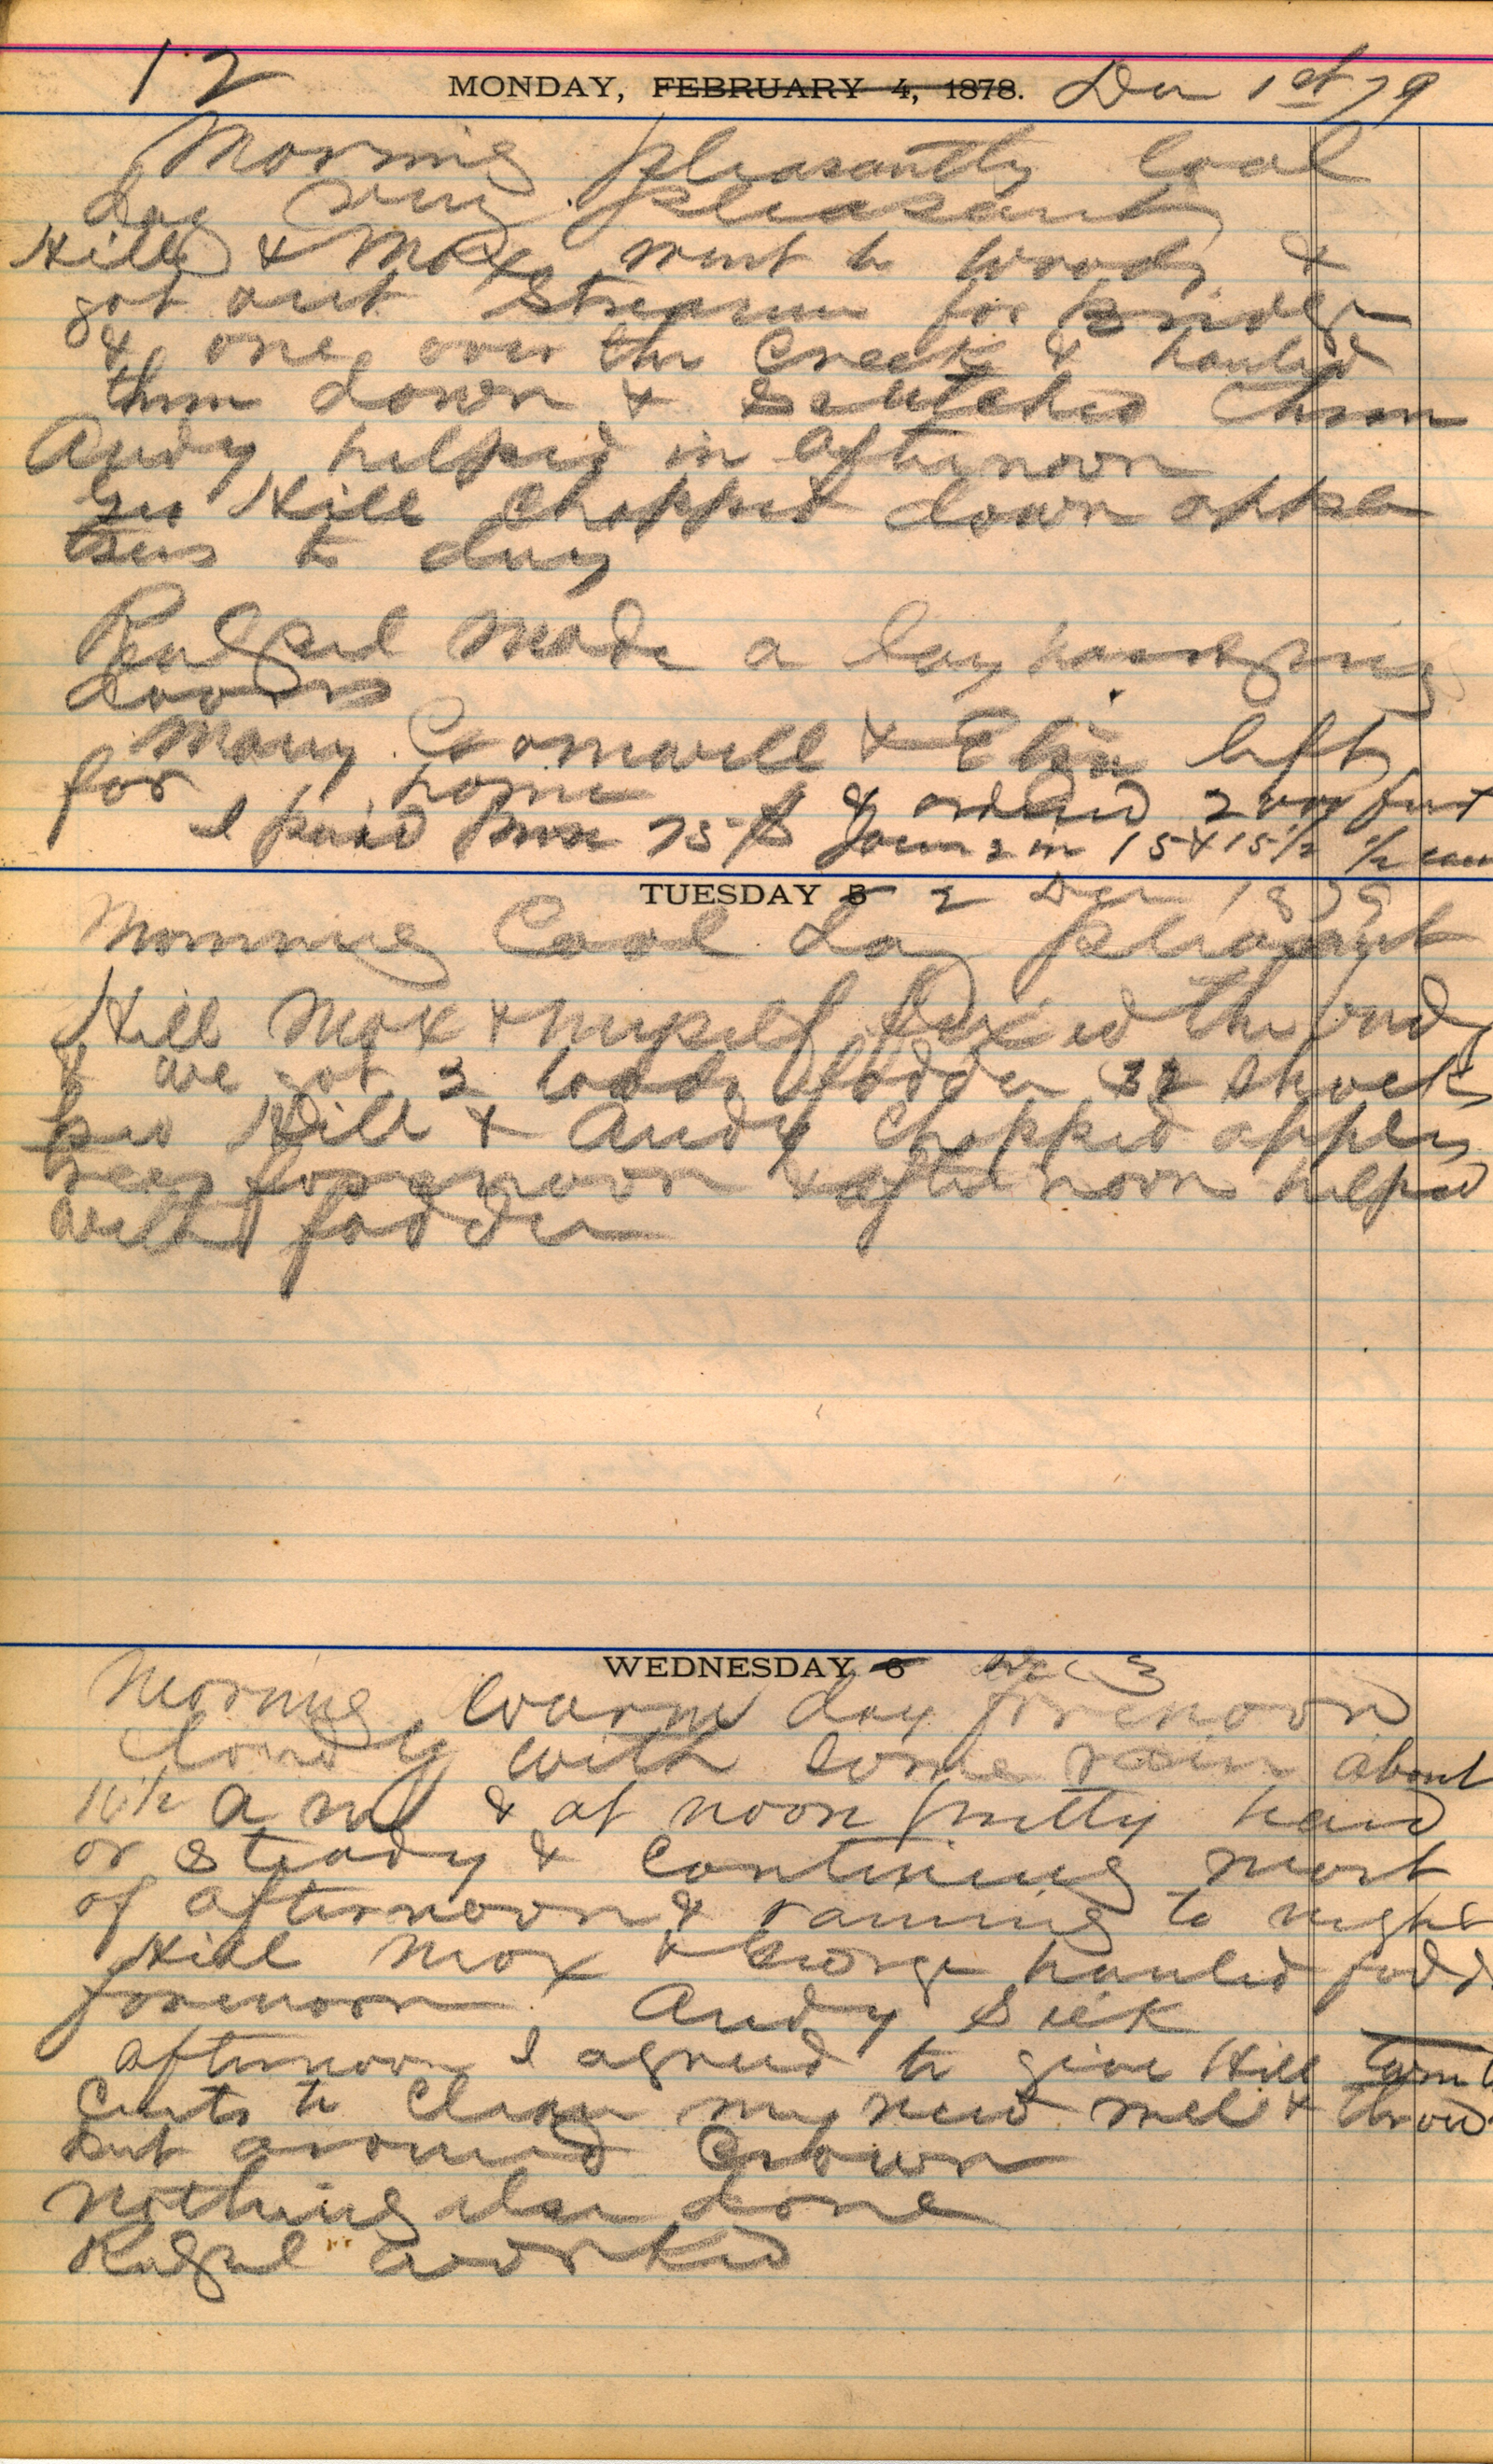 12 MONDAY, FEBRUARY 4, 1878. Dec 1st 79
Morning pleasantly cool
day very pleasant
Hill & Max went to woods &
got out for
& one over the Creek & hauled
them down & them
Andy helped in afternoon
Geo Hill Chopped down apple
trees to day
made a day hanging
doors
Mary Cromwell & left
for home
I paid 75 & ordered 2
2 in 15 x 15 1/2 1/2
TUESDAY 5 2 Dec 1879
Morning Cool day pleasant
Hill Max & myself fixed the
& we got 3 loads fodder 32 shocks
Geo Hill & Andy Chopped apple
trees forenoon & afternoon helped
with fodder
WEDNESDAY 6 Dec 3
Morning warm day forenoon
Cloudy with some rain about
10 1/2 a m & at noon pretty hard
or steady & Continuing most
of afternoon & raining to night
Hill Max & George hauled fodd
forenoon Andy Sick
afternoon I agreed to give Hill
Cents to Clean my & throw
dirt around
nothing else done
worked